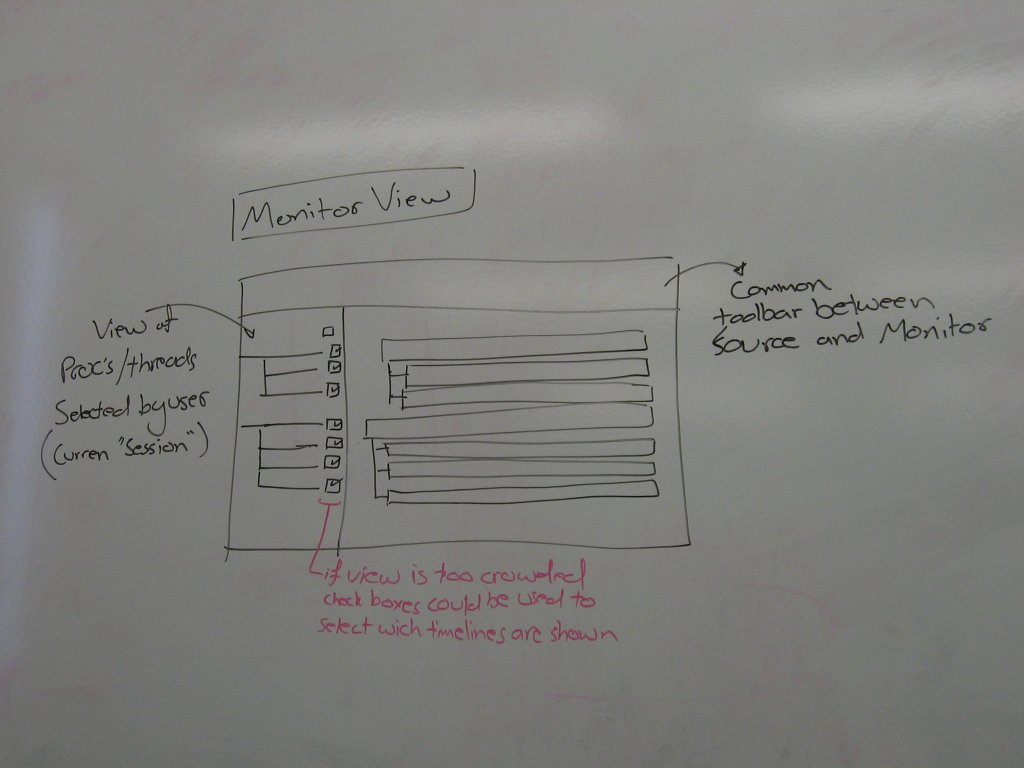 Monitor View
View of
Proc's/threads
Selected by user
(Curren "Session")
Common
toolbar between
Source and Monitor
if view is too crowded
check boxes could be used to
select wich timelines are shown